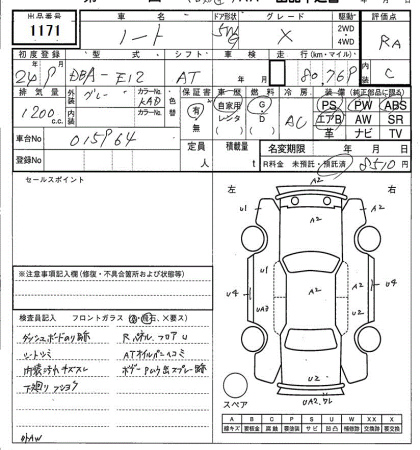 出品番号 車名 ドア形状 グレード 駆動 評価点
1171 ノート 5W X 2WD 4WD RA
初度登録 型式 シフト 車検 走行(km・マイル) 内装
24年9月 DBA-E12 AT 年 月 80,769 C
排気量 外装 グレー カラーNo. KAD 色替 保証書 車歴 燃料 冷房 装備(純正部品に限る)
1200 c.c. 内装 カラーNo. 有 無 自家用 レンタ ( ) G D AC PS PW ABS
エアB AW SR
革 ナビ TV
車台No 015964 定員 人 積載量 t 名変期限 年 月 日
登録No R料金 未預託・預託済 8510円
セールスポイント
左 右
A2
U1 A2 A2
U1
U4 A2 U4
UA3
A2
U2
U2
UA2.ワレ
スペア
※注意事項記入欄(修復・不具合箇所および欠品/状態等)
検査員記入 フロントガラス (飛石、×要ス)
ダッシュボードのり跡 Rパネル、フロアU
シートシミ ATオイルパンヘコミ
内装汚れキズスレ
下廻り
A B C P S U W X XX
線キズ 要板金 腐蝕 要塗装 サビ 凹凸 補修跡 要交換 要交換